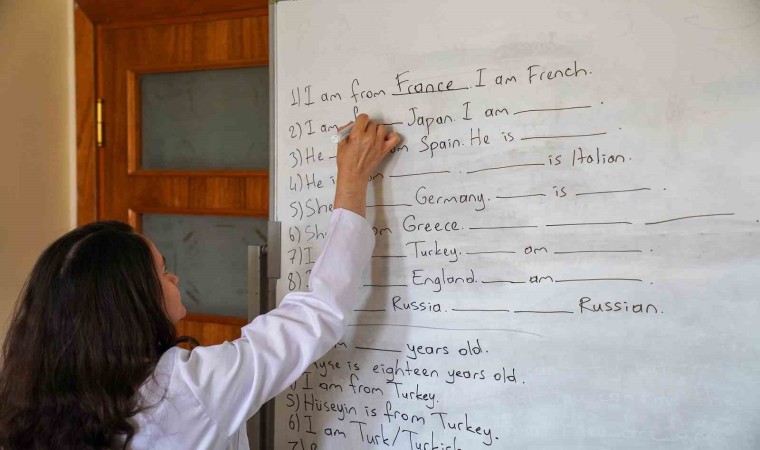 1) I am from France. I am French.
2) I am ____ Japan. I am ________.
3) He ____ Spain. He is ________.
4) He ________. ________ is Italian.
5) She ____ Germany. ____ is ________.
6) Greece. ________ ________ ________.
7) I ____ Turkey. ____ am ________.
8) I ____ England. ____ am ________.
____ Russia. ____ ____ Russian.
____ years old.
is eighteen years old.
I am from Turkey.
5) Hüseyin is from Turkey.
6) I am Turk/Turkish